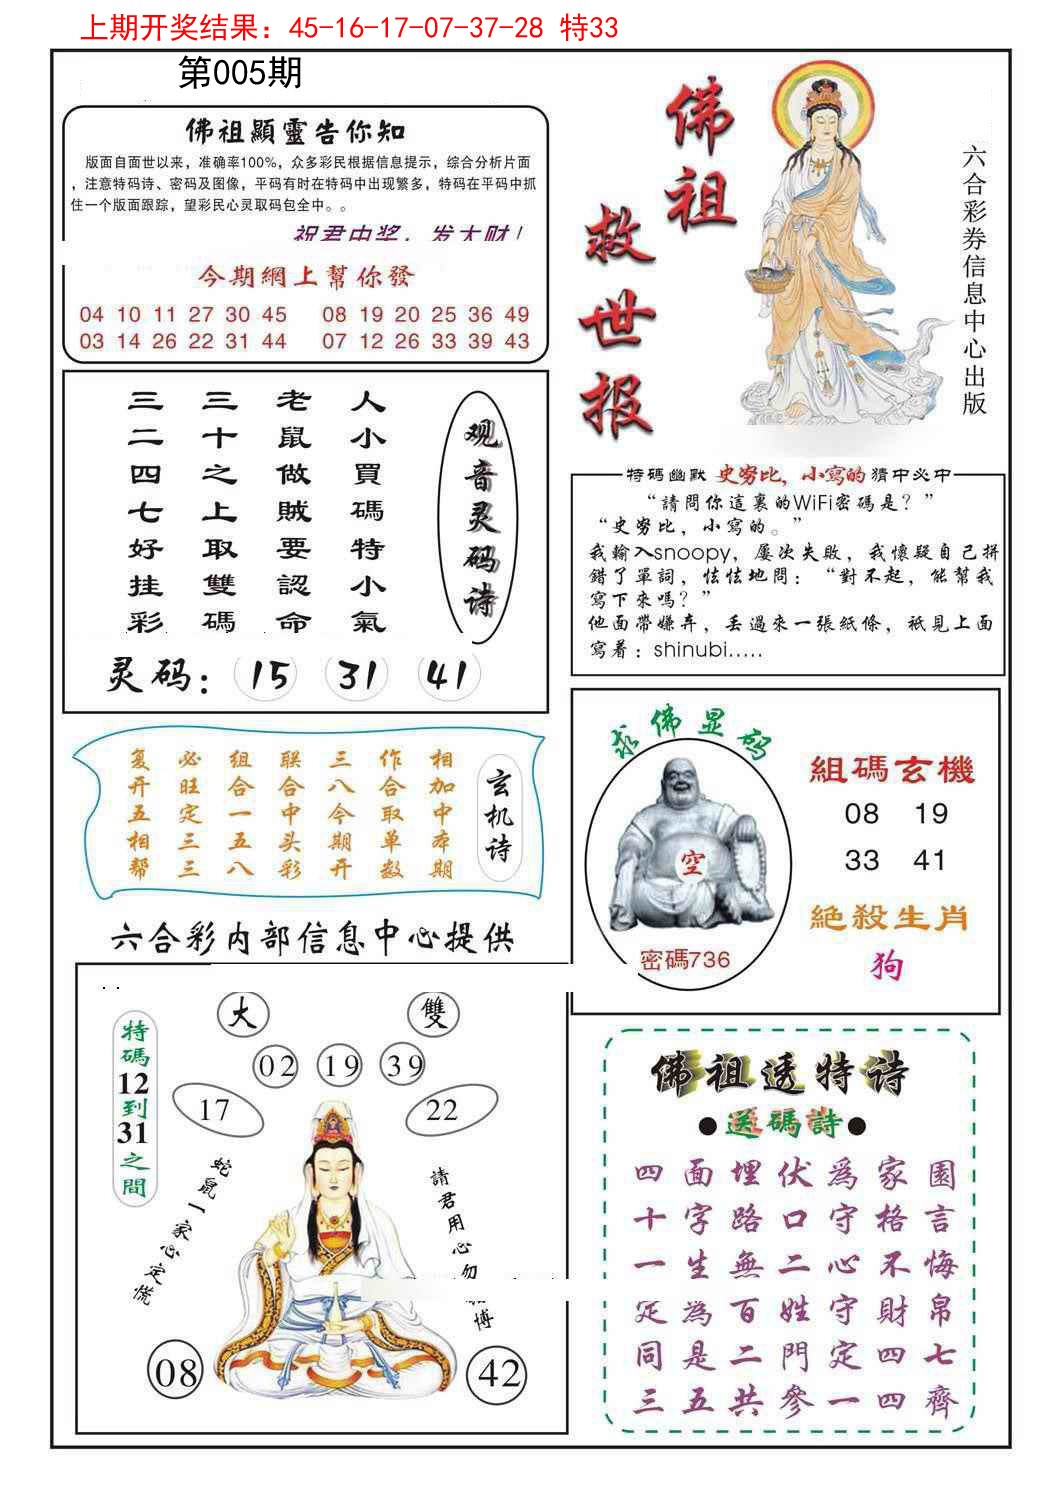 上期开奖结果：45-16-17-07-37-28 特33
第005期
佛祖顯靈告你知
版面自面世以来，准确率100%，众多彩民根据信息提示，综合分析片面
，注意特码诗、密码及图像，平码有时在特码中出现繁多，特码在平码中抓
住一个版面跟踪，望彩民心灵取码包全中。。
祝君中奖，发大财！
今期網上幫你發
04 10 11 27 30 45 08 19 20 25 36 49
03 14 26 22 31 44 07 12 26 33 39 43
佛祖救世报
六合彩券信息中心出版
观音灵码诗
人小買碼特小氣
老鼠做賊要認命
三十之上取雙碼
三二四七好挂彩
灵码：15 31 41
特碼幽默 史努比，小寫的 猜中必中
“請問你這裏的WiFi密碼是？”
“史努比，小寫的。”
我輸入snoopy，屢次失敗，我懷疑自己拼
錯了單詞，怯怯地問：“對不起，能幫我
寫下來嗎？”
他面帶嫌弃，丢過來一張紙條，祇見上面
寫着：shinubi.....
玄机诗
相加中本期
作合取单数
三八今期开
联合中头彩
组合一五八
必旺定三三
复开五相帮
求佛显码
空
密碼736
組碼玄機
08 19
33 41
絕殺生肖
狗
六合彩内部信息中心提供
特碼12到31之間
大 雙
02 19 39
17 22
蛇鼠一家心定慌
請君用心勿 博
08 42
佛祖透特诗
●送碼詩●
四面埋伏爲家園
十字路口守格言
一生無二心不悔
定為百姓守財帛
同是二門定四七
三五共參一四齊